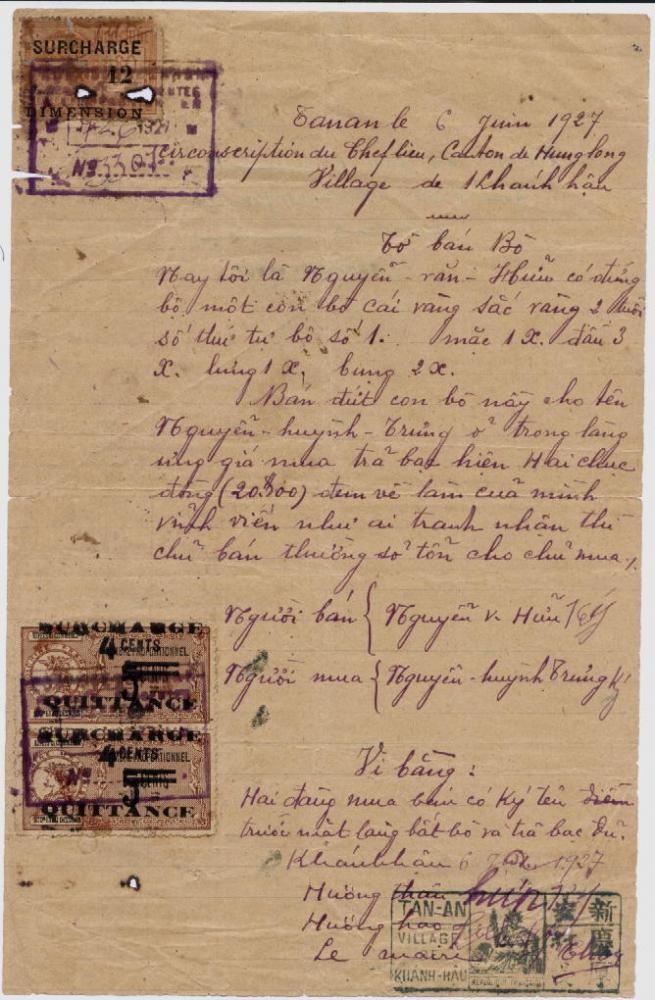 SURCHARGE
12
DIMENSION
1927
Nº 330
Tanan le 6 Juin 1927
Circonscription du Chef lieu, Canton de Hưng long
Village de Khánh hậu
Tờ bán Bò
Nay tôi là Nguyễn-văn-Hữu có đứng
bộ một con bò cái vàng sắc vàng 2 tuổi
số thứ tự bộ số 1. mặc 1 X. đầu 3
X. lưng 1 X, bụng 2 X.
Bán đứt con bò nầy cho tên
Nguyễn-huỳnh-Trưng ở trong làng
ưng giá mua trả bạc hiện Hai chục
đồng (20$00) đem về làm của mình
vĩnh viễn như ai tranh nhận thì
chủ bán thường sở tổn cho chủ mua./.
Người bán { Nguyễn v. Hữu Ký
Người mua { Nguyễn-huỳnh Trưng Ký
SURCHARGE
4 CENTS
5
QUITTANCE
SURCHARGE
4 CENTS
Nº
5
QUITTANCE
Vi bằng:
Hai đàng mua bán có Ký tên điểm
trước mặt làng bắt bò và trả bạc đủ.
Khánh hậu 6 1927
Hương thân
Hương hào
Le maire
TAN-AN
VILLAGE
KHÁNH-HẬU
新
安
慶